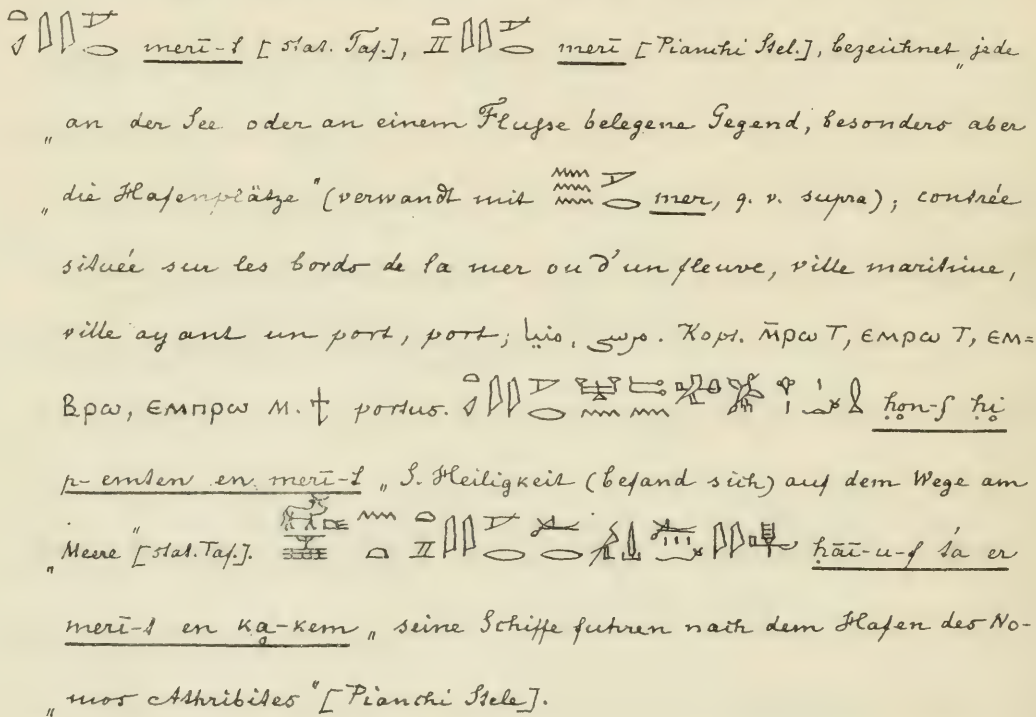 merī-t [stat. Taf.], merī [Pianchi Stel.], bezeichnet „jede
„an der See oder an einem Flusse belegene Gegend, besonders aber
„die Hafenplätze" (verwandt mit mer, q. v. supra); contrée
située sur les bords de la mer ou d'un fleuve, ville maritime,
ville ayant un port, port; مرسى, مينا. Kopt. ⲙ̄ⲣⲱ T, ⲉⲙⲣⲱ T, ⲉⲙ=
ⲃⲣⲱ, ⲉⲙⲡⲣⲱ M. † portus. ḥon-f ḥi
p-emten en merī-t „S. Heiligkeit (befand sich) auf dem Wege am
„Meere" [stat. Taf.]. ḥāī-u-f śa er
merī-t en ka-kem „seine Schiffe fuhren nach dem Hafen des No-
„mos Athribites" [Pianchi Stele].